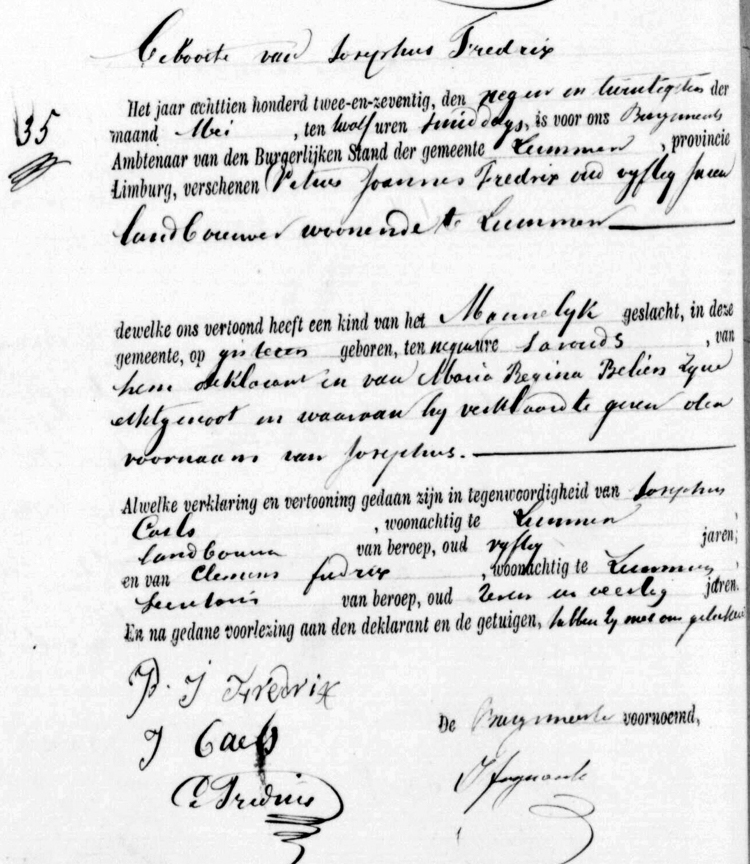 Geboorte van Josephus Fredrix
35
Het jaar achttien honderd twee-en-zeventig, den negen en twintigsten der
maand Mei , ten twalf uren smiddags, is voor ons Burgmeester
Ambtenaar van den Burgerlijken Stand der gemeente Lummen , provincie
Limburg, verschenen Petrus Joannes Fredrix oud vyftig jaren
landbouwer woonende te Lummen
dewelke ons vertoond heeft een kind van het Mannelyk geslacht, in deze
gemeente, op gisteren geboren, ten negen ure savonds , van
hem deklarant en van Maria Regina Beliën Zyne
echtgenoot en waaraan hy verklaard te geven den
voornaam van Josephus.
Alwelke verklaring en vertooning gedaan zijn in tegenwoordigheid van Josephus
Caels , woonachtig te Lummen ,
landbouwer van beroep, oud vyftig jaren;
en van Clemens fredrix , woonachtig te Lummen ,
Secretaris van beroep, oud zeven en veertig jaren.
En na gedane voorlezing aan den deklarant en de getuigen, hebben zy met ons geteekend
P. J Fredrix
De Burgmeester voornoemd,
J Caels
C Fredrix